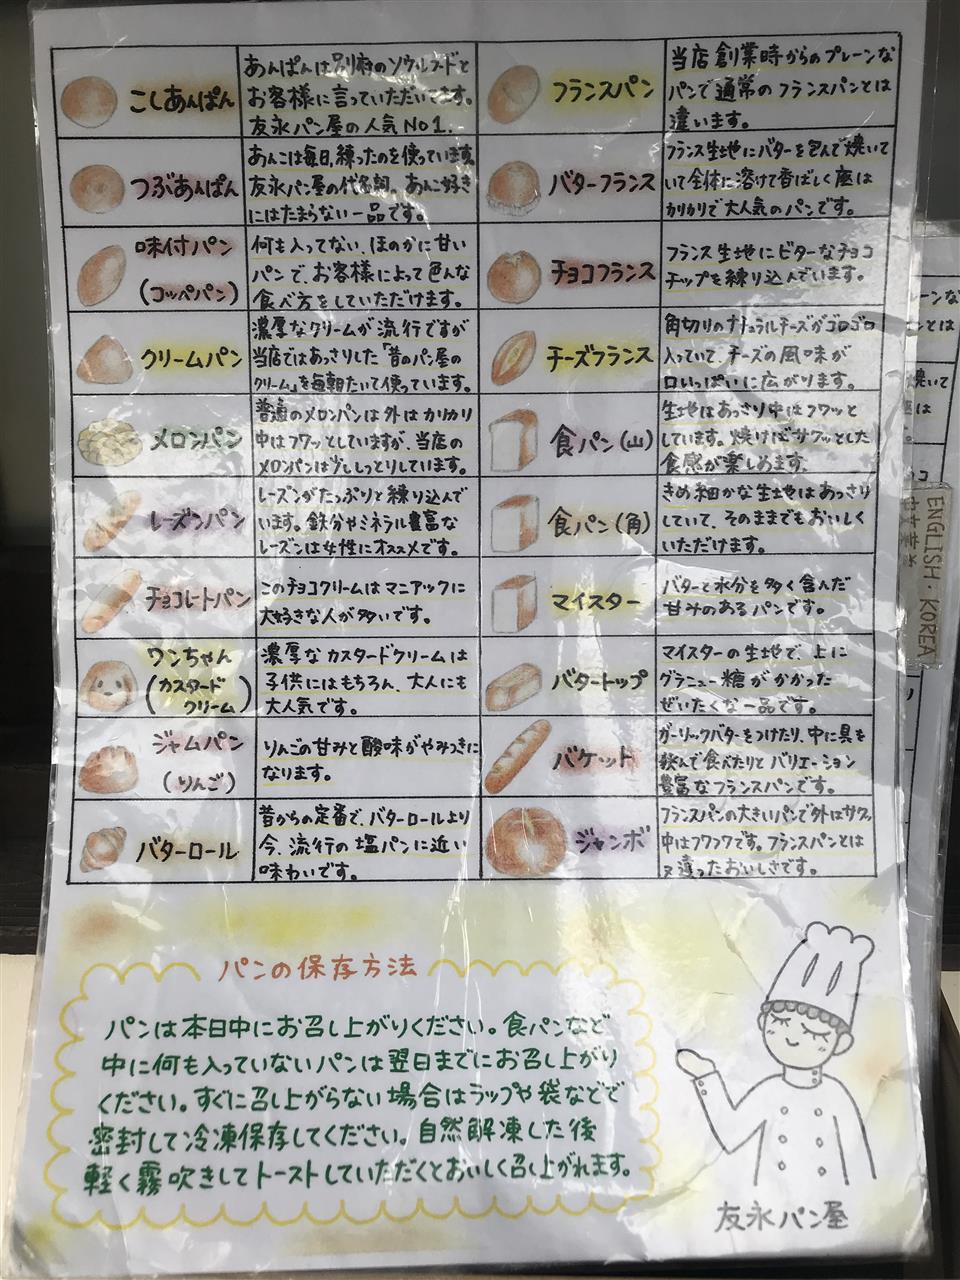 こしあんぱん
あんぱんは別府のソウルフードと
お客様に言っていただいてます。
友永パン屋の人気No1.
つぶあんぱん
あんこは毎日、練ったのを使っています。
友永パン屋の代名詞。あんこ好き
にはたまらない一品です。
味付パン
(コッペパン)
何も入ってない、ほのかに甘い
パンで、お客様によって色んな
食べ方をしていただけます。
クリームパン
濃厚なクリームが流行ですが
当店ではあっさりした「昔のパン屋の
クリーム」を毎朝たいて使っています。
メロンパン
普通のメロンパンは外はカリカリ
中はフワッとしていますが、当店の
メロンパンは少ししっとりしています。
レーズンパン
レーズンがたっぷりと練り込んで
います。鉄分やミネラル豊富な
レーズンは女性にオススメです。
チョコレートパン
このチョコクリームはマニアックに
大好きな人が多いです。
ワンちゃん
(カスタード
クリーム)
濃厚なカスタードクリームは
子供にはもちろん、大人にも
大人気です。
ジャムパン
(りんご)
りんごの甘みと酸味がやみつきに
なります。
バターロール
昔からの定番で、バターロールより
今、流行の塩パンに近い
味わいです。
フランスパン
当店創業時からのプレーンな
パンで通常のフランスパンとは
違います。
バターフランス
フランス生地にバターを包んで焼いて
いて全体に溶けて香ばしく底は
カリカリで大人気のパンです。
チョコフランス
フランス生地にビターなチョコ
チップを練り込んでいます。
チーズフランス
角切りのナチュラルチーズがゴロゴロ
入っていて、チーズの風味が
口いっぱいに広がります。
食パン(山)
生地はあっさり中はフワッと
しています。焼けばサクッとした
食感が楽しめます。
食パン(角)
きめ細かな生地はあっさり
していて、そのままでもおいしく
いただけます。
マイスター
バターと水分を多く含んだ
甘みのあるパンです。
バタートップ
マイスターの生地で、上に
グラニュー糖がかかった
ぜいたくな一品です。
バケット
ガーリックバターをつけたり、中に具を
挟んで食べたりとバリエーション
豊富なフランスパンです。
ジャンボ
フランスパンの大きいパンで外はサクッ
中はフワフワです。フランスパンとは
又違ったおいしさです。
パンの保存方法
パンは本日中にお召し上がりください。食パンなど
中に何も入っていないパンは翌日までにお召し上がり
ください。すぐに召し上がらない場合はラップや袋などで
密封して冷凍保存してください。自然解凍した後
軽く霧吹きしてトーストしていただくとおいしく召し上がれます。
友永パン屋
ENGLISH・KOREA